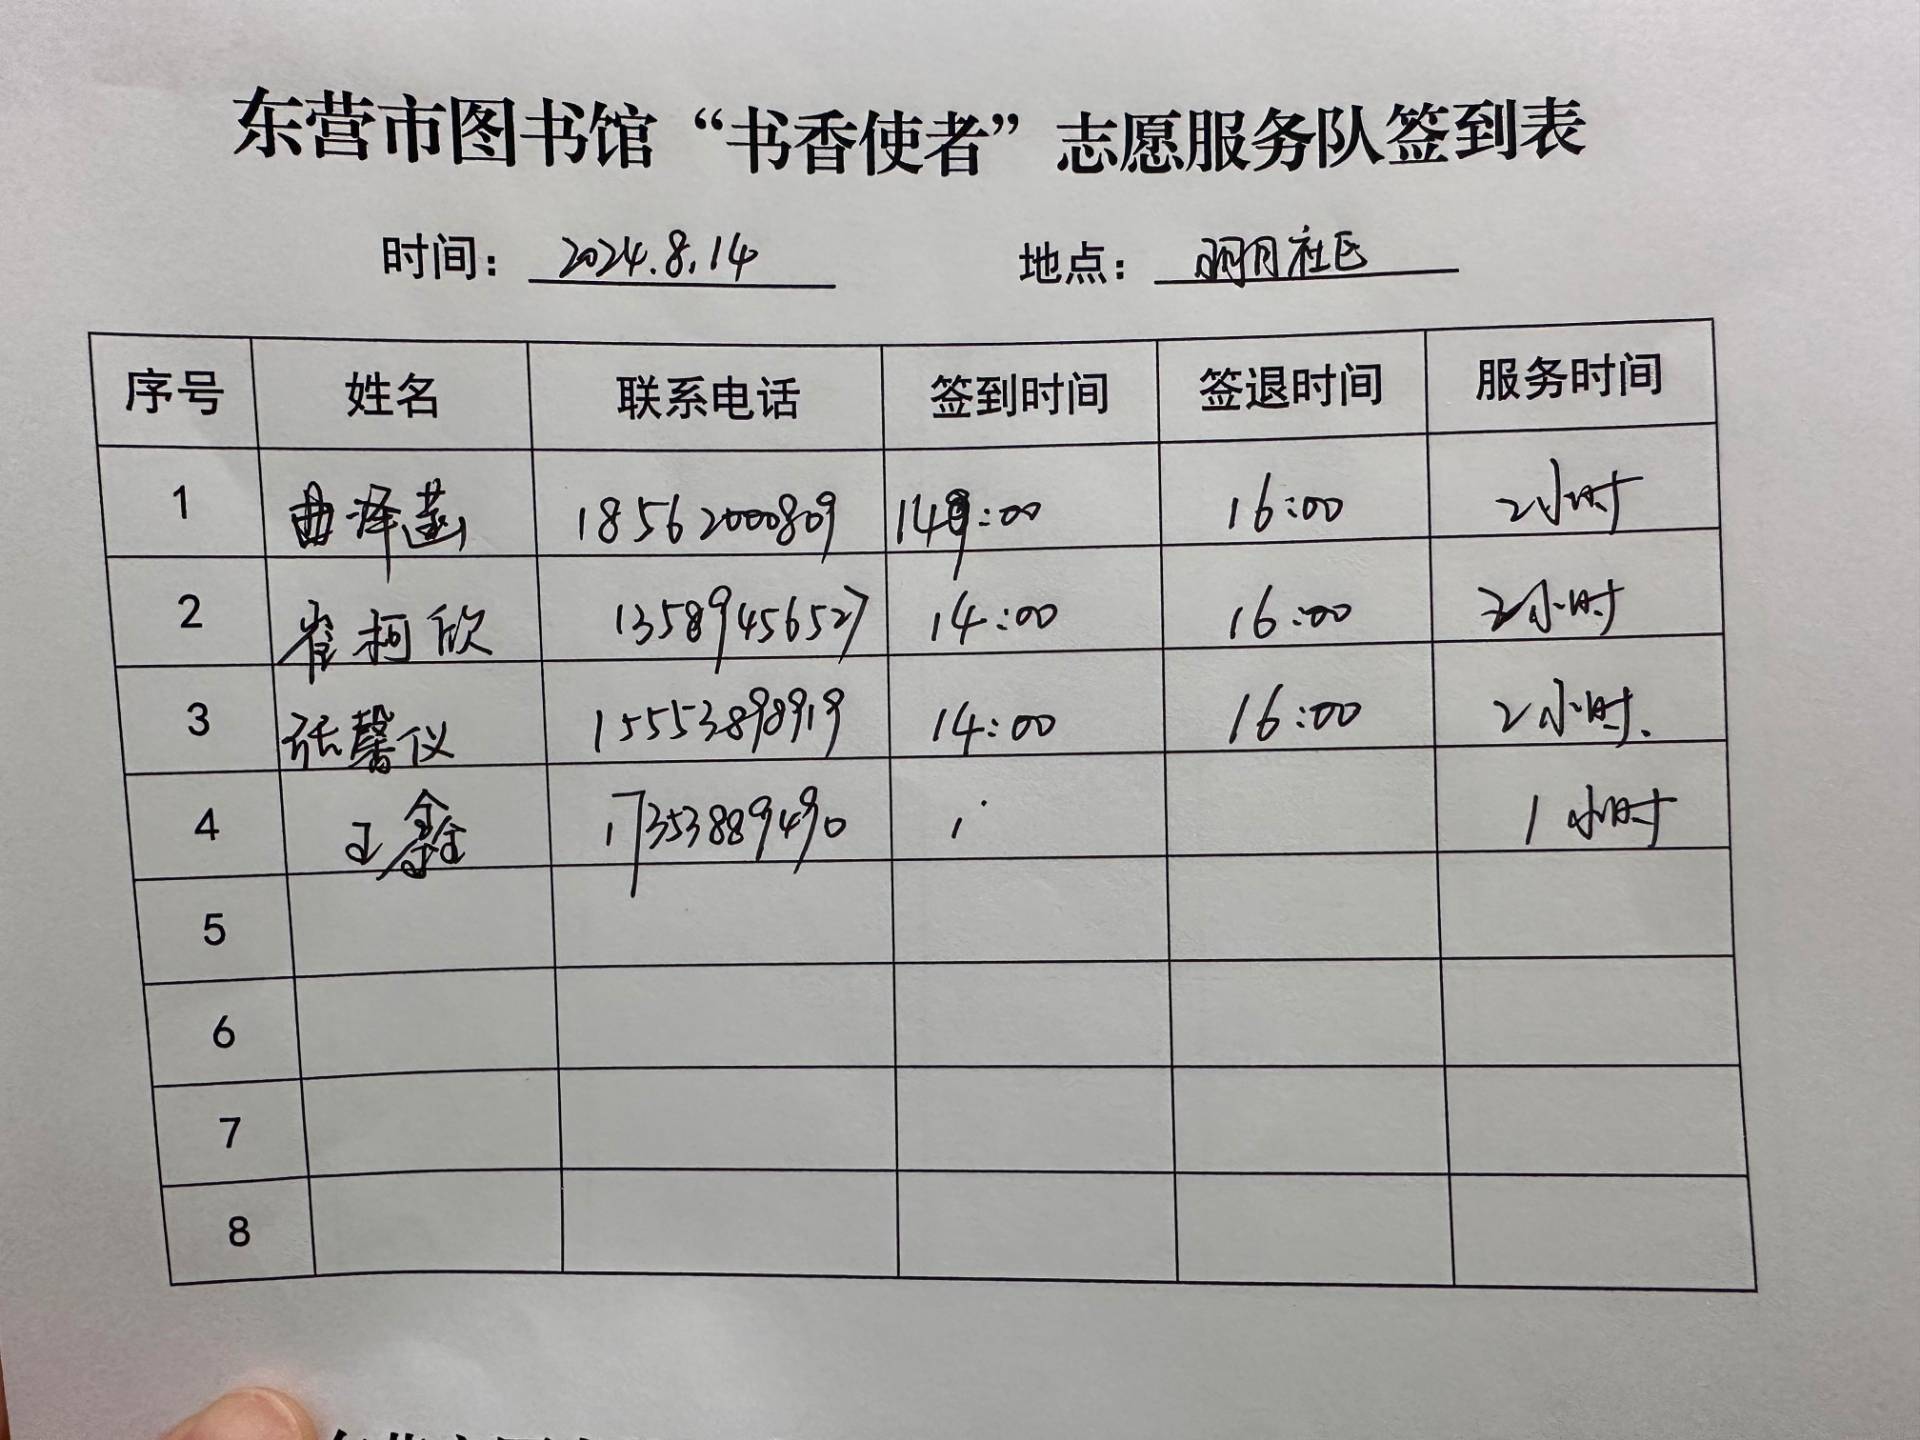 东营市图书馆“书香使者”志愿服务队签到表
时间：2024.8.14 地点：明月社区
序号 姓名 联系电话 签到时间 签退时间 服务时间
1 曲泽菡 18562000809 14:00 16:00 2小时
2 崔柯欣 13589456527 14:00 16:00 2小时
3 张馨仪 15553898919 14:00 16:00 2小时.
4 王鑫 17353889490 1小时
5
6
7
8